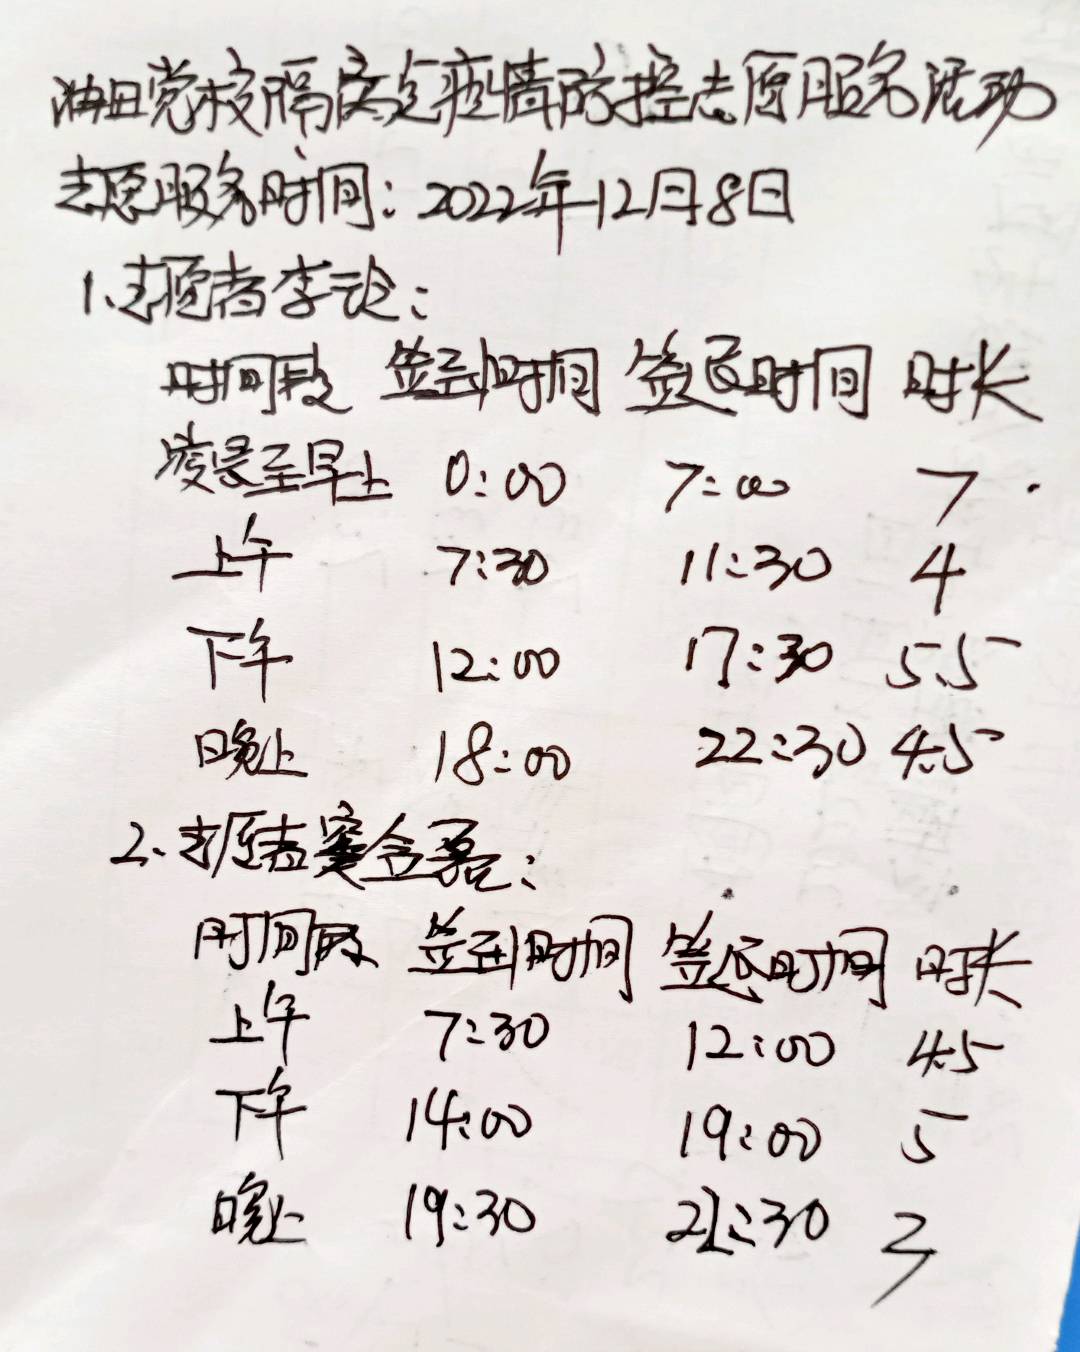 油田党校隔离点疫情防控志愿服务活动
志愿服务时间：2022年12月8日
1.志愿者李论：
时间段 签到时间 签退时间 时长
凌晨至早上 0:00 7:00 7
上午 7:30 11:30 4
下午 12:00 17:30 5.5
晚上 18:00 22:30 4.5
2.志愿者窦含磊：
时间段 签到时间 签退时间 时长
上午 7:30 12:00 4.5
下午 14:00 19:00 5
晚上 19:30 :30 3